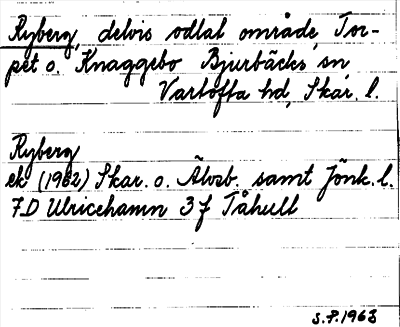 Ryberg, delvis odlat område, Tor-
pet o. Knaggebo Bjurbäcks sn,
Vartofta hd, Skar. l.
Ryberg
ek (1962) Skar. o. Älvsb. samt Jönk. l.
7D Ulricehamn 3 f Tåhult
S.P. 1963